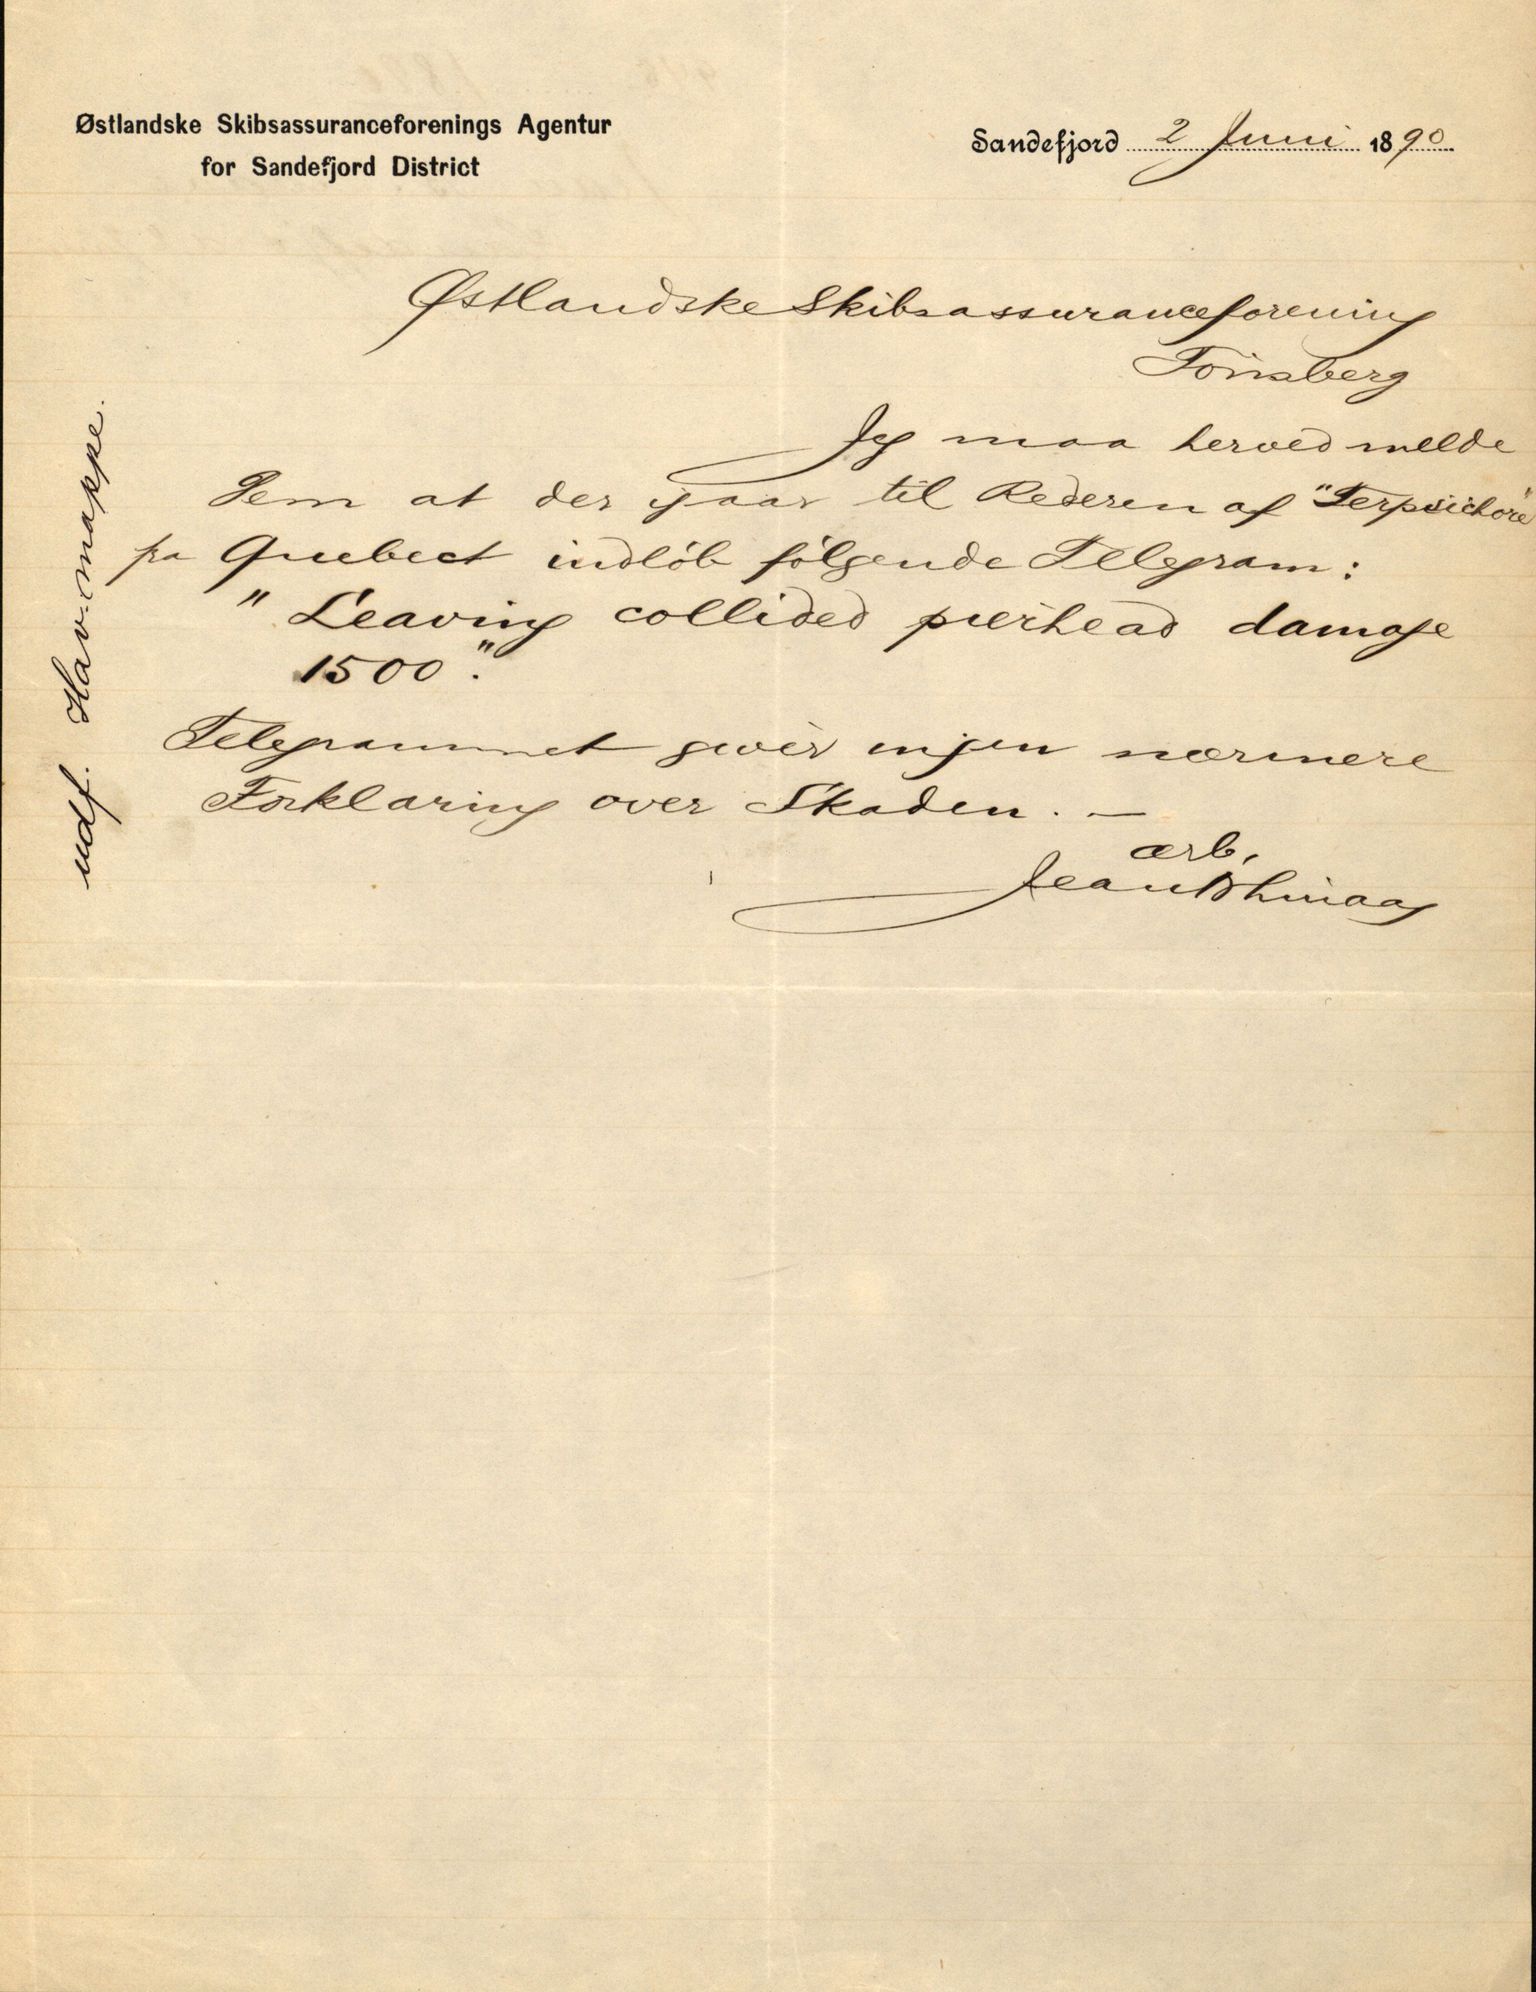 Østlandske Skibsassuranceforenings Agentur
for Sandefjord District
Sandefjord 2 Juni 1890.
Østlandske Skibsassuranceforening
Tönsberg
Jeg maa herved melde
Dem at der igaar til Rederen af "Terpsichore"
fra Quebect indløb følgende Telegram:
"Leaving collided pierhead damage
1500".
Telegrammet giver ingen nærmere
Forklaring over Skaden. —
ærb.
Jean
udf. Hav.mappe.